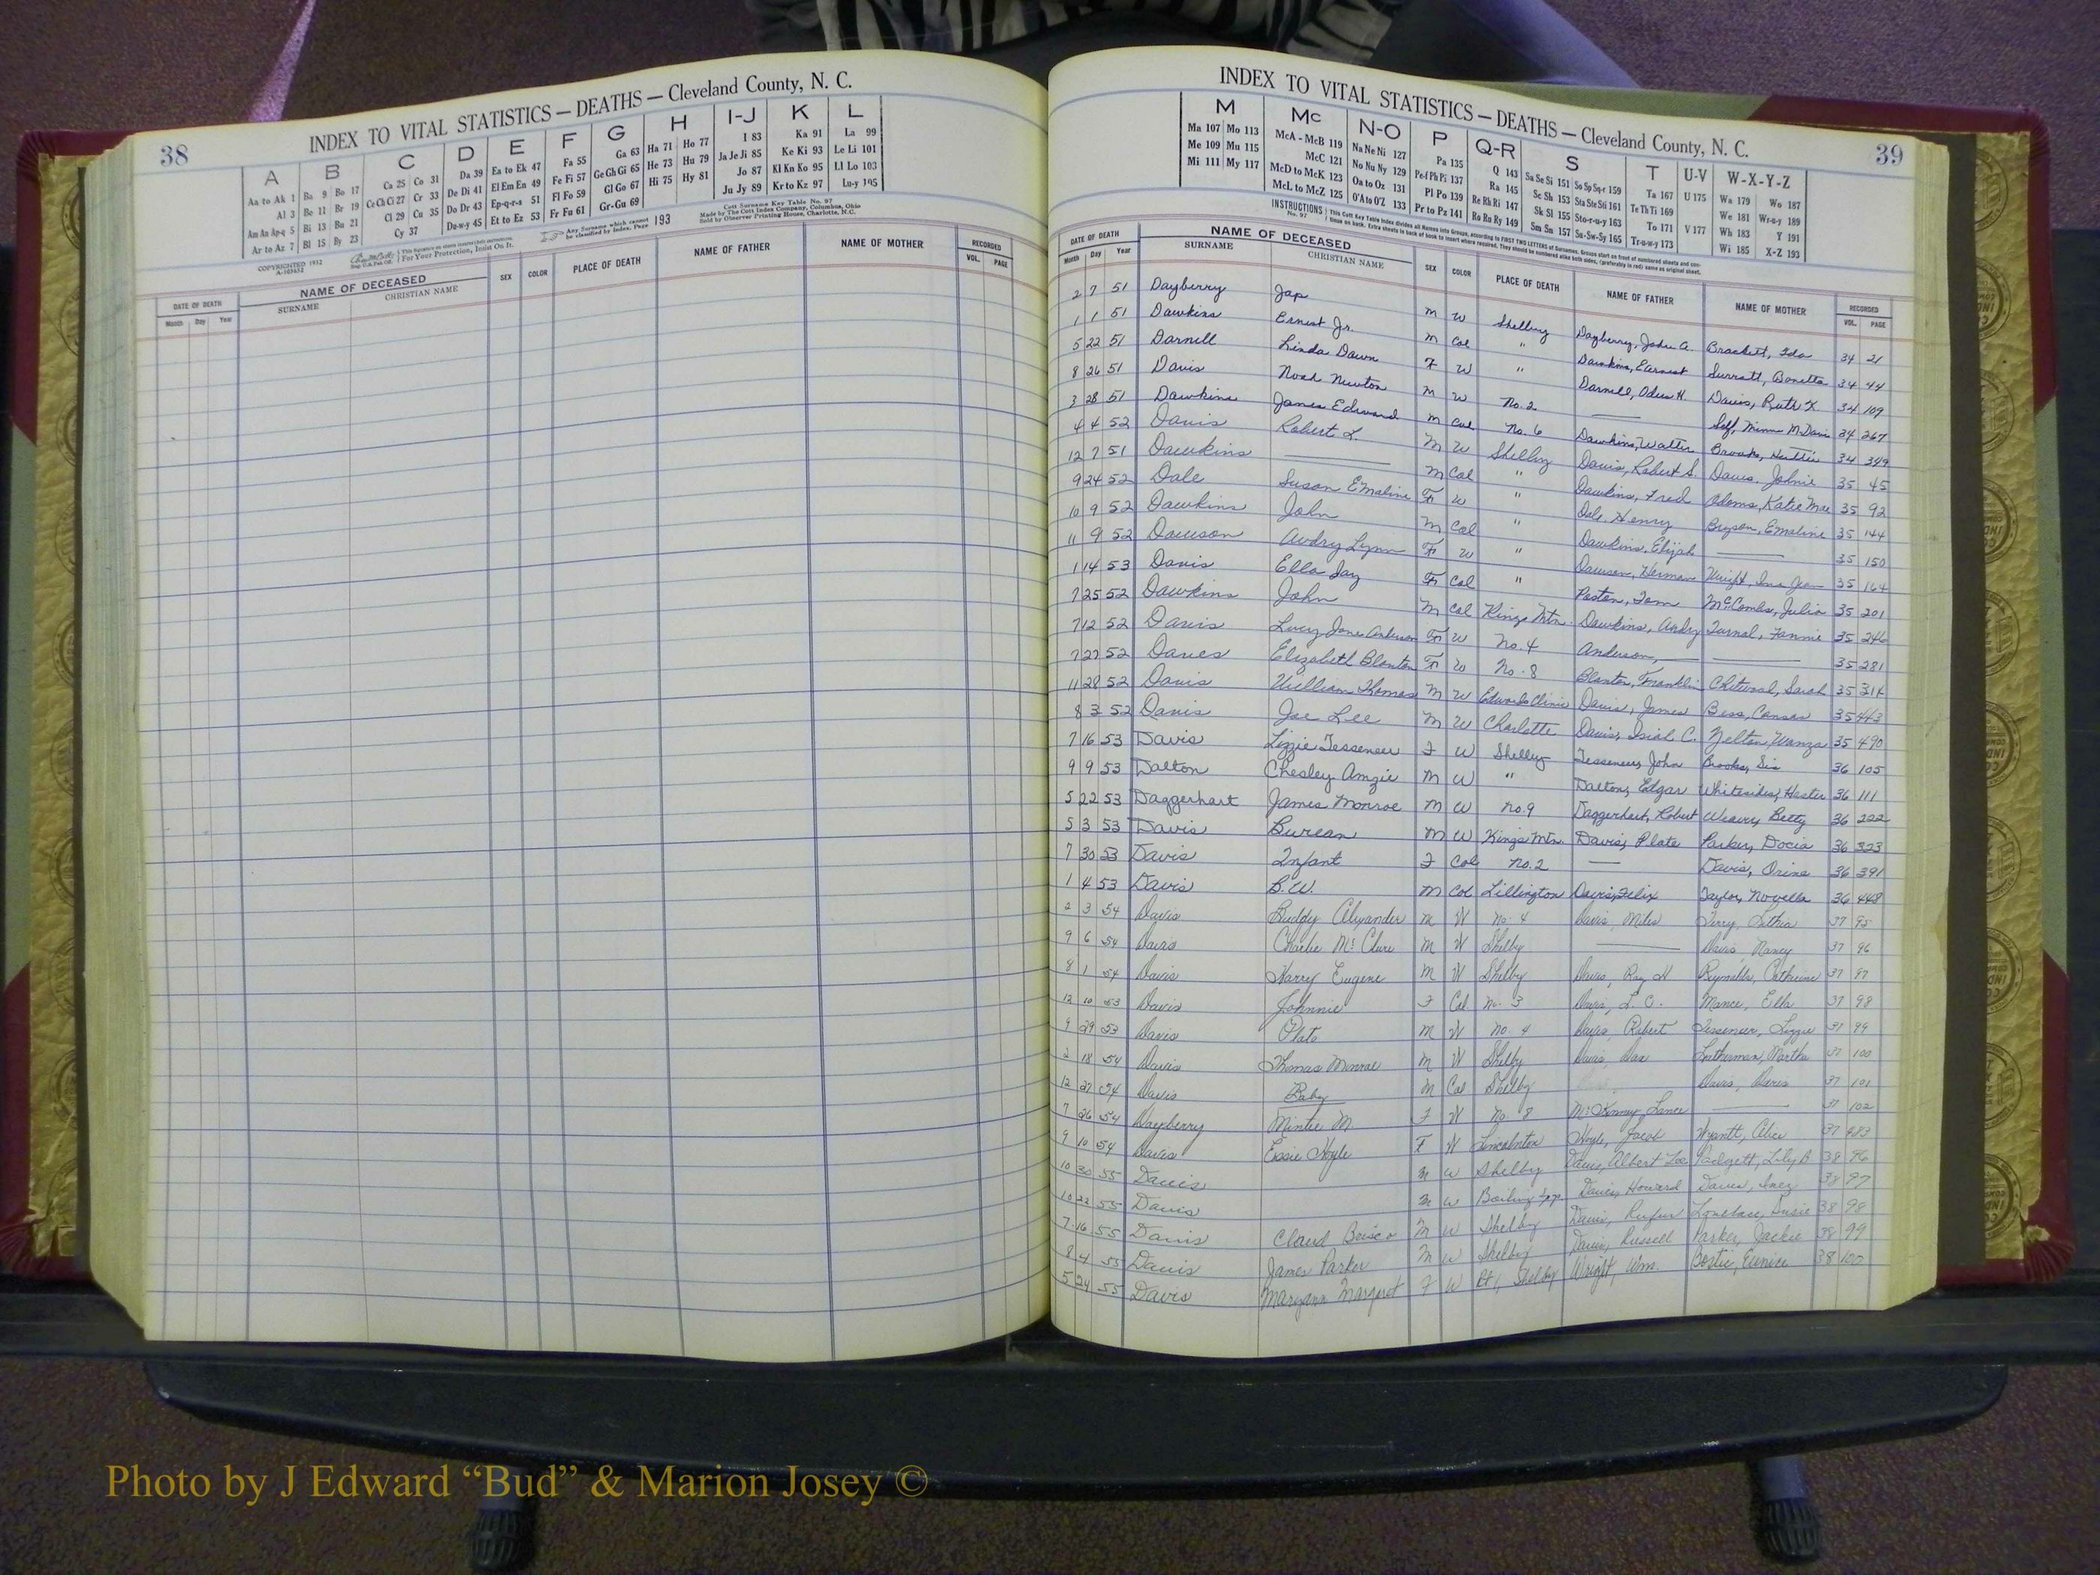 38
INDEX TO VITAL STATISTICS — DEATHS — Cleveland County, N. C.
A B C D E F G H I-J K L
Aa to Ak 1 Ba 9 Bo 17 Ca 25 Co 31 Da 39 Ea to Ek 47 Fa 55 Ga 63 Ha 71 Ho 77 I 83 Ka 91 La 99
Al 3 Be 11 Br 19 Ce Ch Ci 27 Cr 33 De Di 41 El Em En 49 Fe Fi 57 Ge Gh Gi 65 He 73 Hu 79 Ja Je Ji 85 Ke Ki 93 Le Li 101
Am An Ap-q 5 Bi 13 Bu 21 Cl 29 Cu 35 Do Dr 43 Ep-q-r-s 51 Fl Fo 59 Gl Go 67 Hi 75 Hy 81 Jo 87 Kl Kn Ko 95 Ll Lo 103
Ar to Az 7 Bl 15 By 23 Cy 37 Du-w-y 45 Et to Ez 53 Fr Fu 61 Gr-Gu 69 Ju Jy 89 Kr to Kz 97 Lu-y 105
COPYRIGHTED 1932
A-103652
For Your Protection, Insist On It.
Any Surname which cannot be classified by Index, Page 193
Cott Surname Key Table No. 97
Made by The Cott Index Company, Columbus, Ohio
Sold by Observer Printing House, Charlotte, N.C.
DATE OF DEATH NAME OF DECEASED SEX COLOR PLACE OF DEATH NAME OF FATHER NAME OF MOTHER RECORDED
Month Day Year SURNAME CHRISTIAN NAME VOL. PAGE
39
INDEX TO VITAL STATISTICS — DEATHS — Cleveland County, N. C.
M Mc N-O P Q-R S T U-V W-X-Y-Z
Ma 107 Mo 113 McA - McB 119 Na Ne Ni 127 Pa 135 Q 143 Sa Se Si 151 So Sp Sq-r 159 Ta 167 U 175 Wa 179 Wo 187
Me 109 Mu 115 McC 121 No Nu Ny 129 Pe-f Ph Pi 137 Ra 145 Sc Sh 153 Sta Ste Sti 161 Te Th Ti 169 We 181 Wr-u-y 189
Mi 111 My 117 McD to McK 123 Oa to Oz 131 Pl Po 139 Re Rh Ri 147 Sk Sl 155 Sto-r-u-y 163 To 171 V 177 Wh 183 Y 191
McL to McZ 125 O'A to O'Z 133 Pr to Pz 141 Ro Ru Ry 149 Sm Sn 157 Su-Sw-Sy 165 Tr-u-w-y 173 Wi 185 X-Z 193
INSTRUCTIONS No. 97
DATE OF DEATH NAME OF DECEASED SEX COLOR PLACE OF DEATH NAME OF FATHER NAME OF MOTHER RECORDED
Month Day Year SURNAME CHRISTIAN NAME VOL. PAGE
2 7 51 Dayberry Jap M W Shelby Dayberry, John A. Brackett, Ida 34 21
1 1 51 Dawkins Ernest Jr. M Col " Dawkins, Earnest Surratt, Bonetta 34 44
5 22 51 Darnell Linda Dawn F W " Darnell, Odus H. Davis, Ruth 34 109
8 26 51 Davis Noah Newton M W No. 2 Self, Minnie M. Davis 34 267
3 28 51 Dawkins James Edward M Col No. 6 Dawkins, Walter Brooks, Hettie 34 349
4 4 52 Davis Robert L. M W Shelby Davis, Robert S. Davis, Johnie 35 45
12 7 51 Dawkins M Col " Dawkins, Fred Adams, Katie Mae 35 92
9 24 52 Dale Susan Emaline F W " Dale, Henry Bryson, Emaline 35 144
10 9 52 Dawkins John M Col " Dawkins, Elijah 35 150
11 9 52 Dawson Audry Lynn F W " Dawson, Herman Wright, Ina Jean 35 164
1 14 53 Davis Ella Jay F Col " Poston, Tom McCombs, Julia 35 201
7 25 52 Dawkins John M Col Kings Mtn. Dawkins, Andy Fannie 35 246
7 12 52 Davis Lucy Jane Anderson F W No. 4 Anderson, 35 281
7 27 52 Davis Elizabeth Blanton F W No. 8 Blanton, Franklin Chitwood, Sarah 35 314
11 28 52 Davis William Thomas M W Edwards Clinic Davis, James Bess, Cansas 35 443
8 3 52 Davis Joe Lee M W Charlotte Davis, Isiah C. Melton, Wanza 35 490
7 16 53 Davis Lizzie Tesseneer F W Shelby Tesseneer, John Brooks, Sis 36 105
9 9 53 Dalton Chesley Amzie M W " Dalton, Edgar Whitesides, Hester 36 111
5 22 53 Daggerhart James Monroe M W No. 9 Daggerhart, Robert Weaver, Betty 36 222
5 3 53 Davis Burean M W Kings Mtn. Davis, Plato Parker, Docia 36 323
7 30 53 Davis Infant F Col No. 2 Davis, Orine 36 391
1 4 53 Davis B.W. M Col Lillington Davis, Felix Taylor, Novella 36 448
2 3 54 Davis Buddy Alexander M W No. 4 Davis, Miles 37 95
9 6 54 Davis Charlie McClure M W Shelby Davis, Nancy 37 96
8 1 54 Davis Harry Eugene M W Shelby Davis, Ray H Reynolds, Catherine 37 97
12 10 53 Davis Johnnie F Col No. 3 Davis, L. O. Mance, Ella 37 98
9 29 53 Davis Plato M W No. 4 Davis, Robert Tesseneer, Lizzie 37 99
2 18 54 Davis Thomas Monroe M W Shelby Davis, Dan Martha 37 100
12 27 54 Davis Baby M Col Shelby Davis, Doris 37 101
7 26 54 Dayberry Mintie M F W No. 8 McKinney, Lance 37 102
9 10 54 Davis Essie Hoyle F W Lincolnton Hoyle, Jacob Wyantt, Alice 37 483
10 30 55 Davis M W Shelby Davis, Albert Lee Padgett, Lily B 38 96
10 22 55 Davis M W Boiling Spgs. Davis, Howard Davis, Inez 38 97
7 16 55 Davis Claud Boisco M W Shelby Davis, Rufus Lovelace, Susie 38 98
8 4 55 Davis James Parker M W Shelby Davis, Russell Parker, Jackie 38 99
5 24 55 Davis Maryann Margaret F W Rt 1, Shelby Wright, Wm. Bostic, Eunice 38 100
Photo by J Edward “Bud” & Marion Josey ©